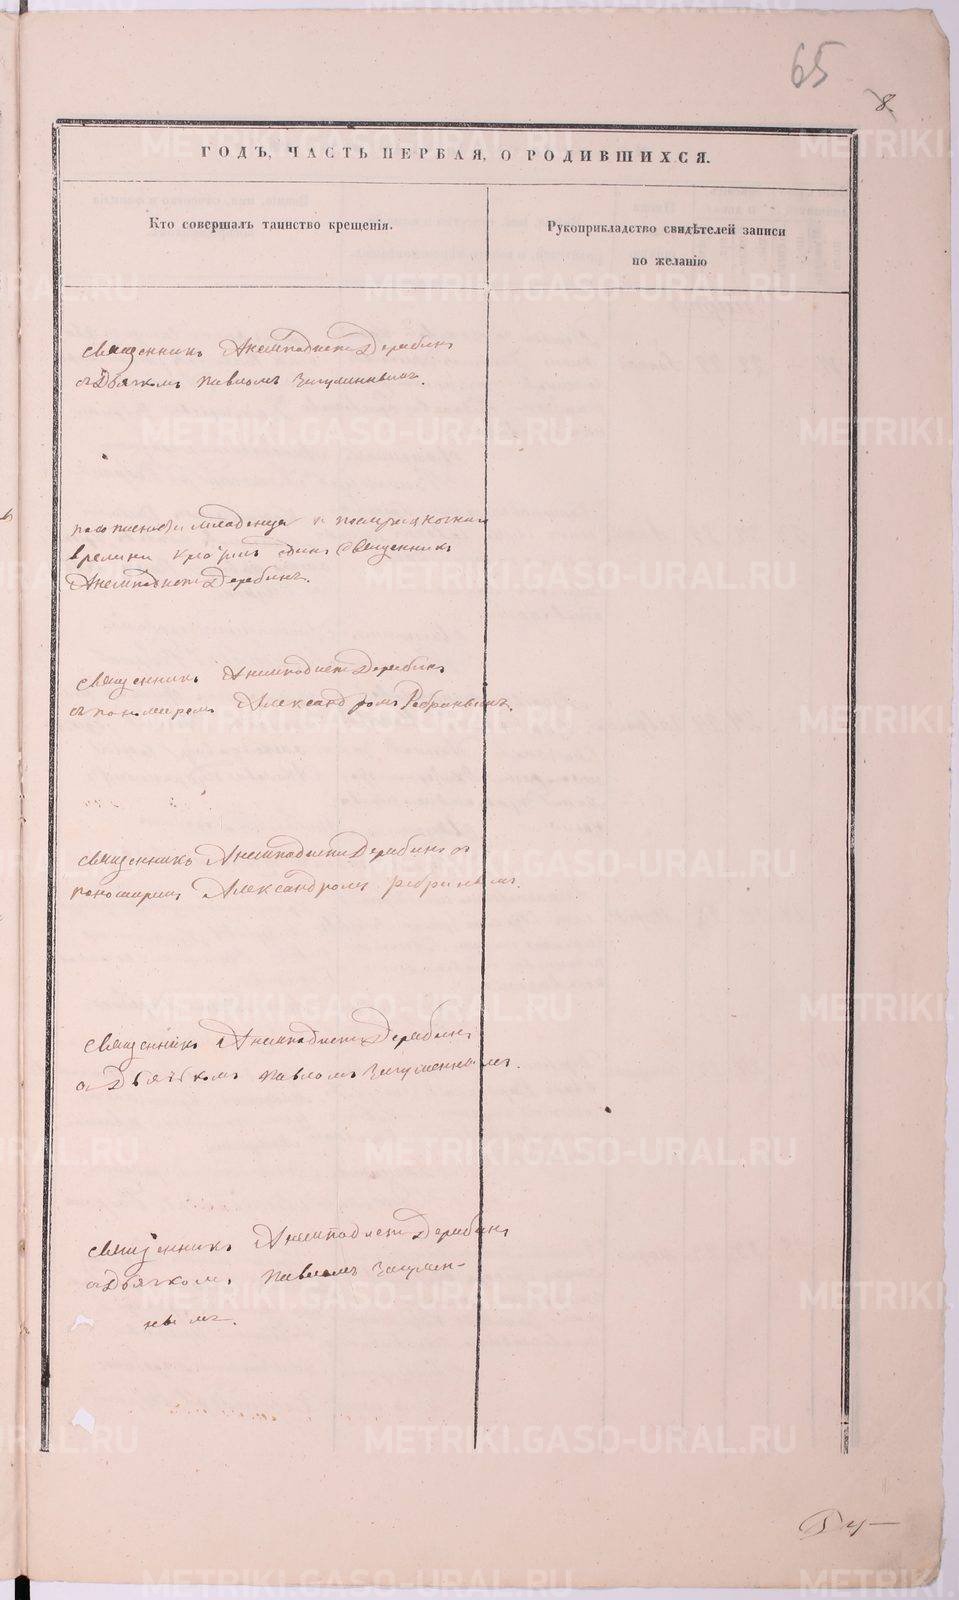 65
8.
ГОДЪ, ЧАСТЬ ПЕРВАЯ, О РОДИВШИХСЯ.
Кто совершалъ таинство крещенія.
Рукоприкладство свидѣтелей записи
по желанію
священникъ Анемподистъ Дерябинъ
съ Дьячкомъ Павломъ Загуменнымъ.
младенца и
времени одинъ священникъ
Анемподистъ Дерябинъ.
священникъ Анемподистъ Дерябинъ
съ пономаремъ Александромъ
священникъ Анемподистъ Дерябинъ съ
пономаремъ Александромъ
священникъ Анемподистъ Дерябинъ
съ Дьячкомъ Павломъ Загуменнымъ.
священникъ Анемподистъ Дерябинъ
съ Дьячкомъ Павломъ Загумен-
нымъ.
METRIKI.GASO-URAL.RU